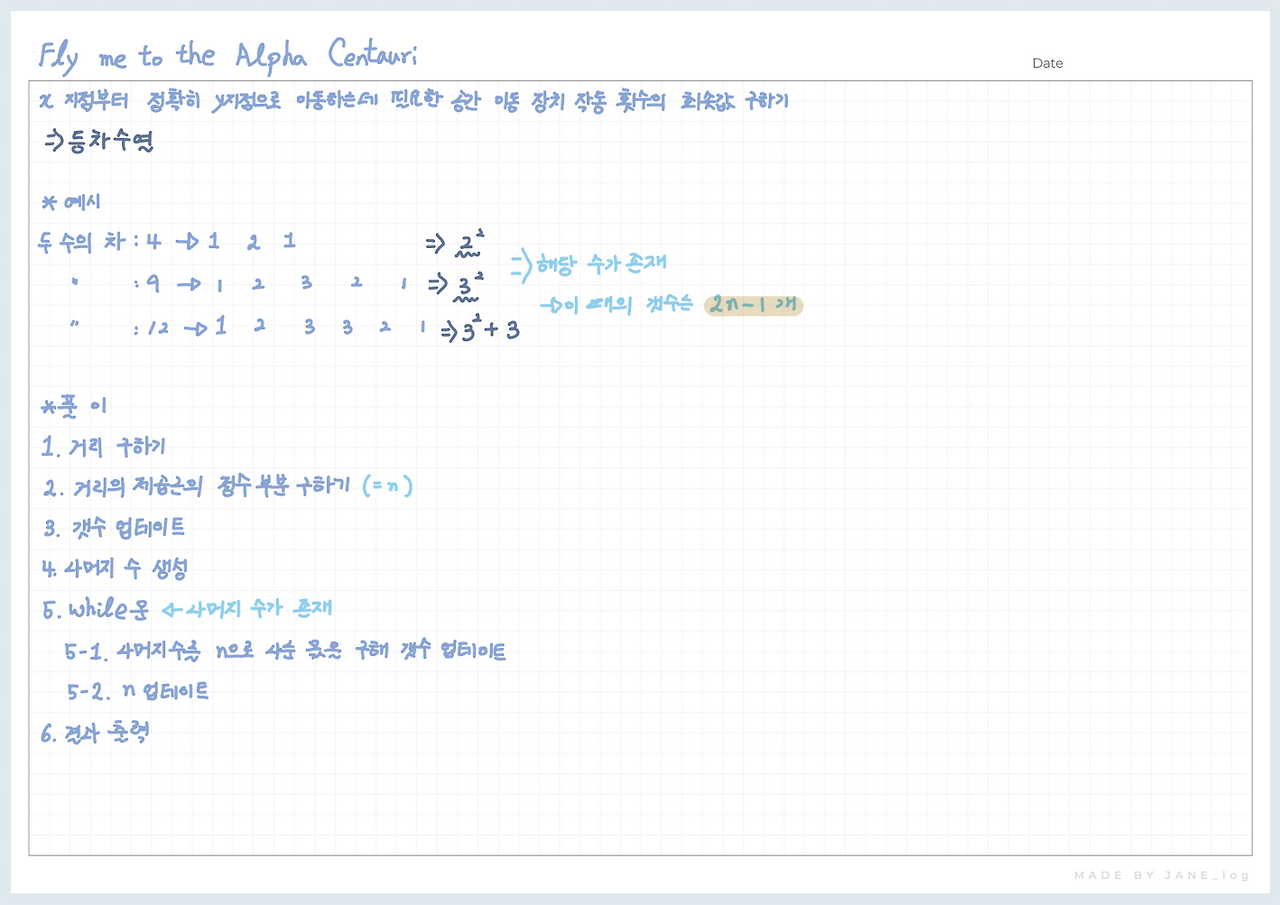 Fly me to the Alpha Centauri
Date
x 지점부터 정확히 y지점으로 이동하는데 필요한 공간 이동 장치 작동 횟수의 최솟값 구하기
=> 등차수열
* 예시
두 수의 차 : 4 → 1 2 1 => 2²
" : 9 → 1 2 3 2 1 => 3²
=> 해당 수가 존재
→ 이 때의 갯수는 2n-1개
" : 12 → 1 2 3 3 2 1 => 3² + 3
* 풀이
1. 거리 구하기
2. 거리의 제곱근의 정수 부분 구하기 (=n)
3. 갯수 업데이트
4. 나머지 수 생성
5. while문 ← 나머지 수가 존재
5-1. 나머지수를 n으로 나눈 몫을 구해 갯수 업데이트
5-2. n 업데이트
6. 결과 출력
MADE BY JANE_log